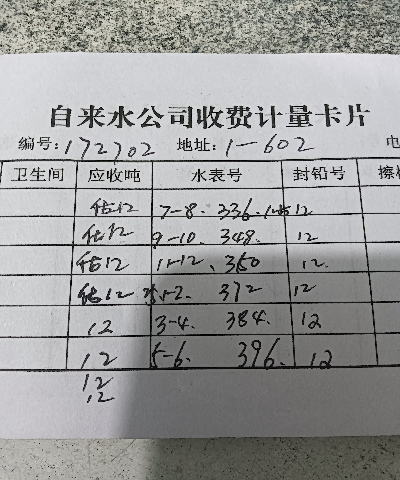 自来水公司收费计量卡片
编号:172702 地址:1-602 电
卫生间 应收吨 水表号 封铅号 擦
估12 7-8. 336. 12
估12 9-10. 348. 12
估12 11-12. 360 12.
估12 1-2. 372 12
12 3-4. 384. 12
12 5-6. 396. 12
12
12